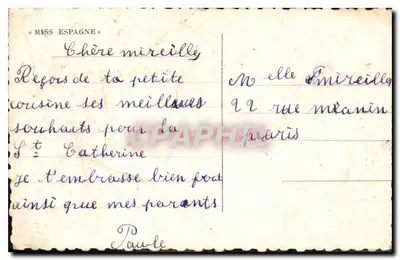 « MISS ESPAGNE »
Chère mireille
Reçois de ta petite
cousine ses meilleurs
souhaits pour la
Ste Catherine
je t'embrasse bien fort
ainsi que mes parents
Paule
Melle mireille
22 rue
paris